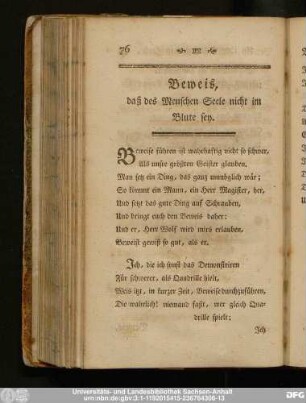 76
Beweis,
daß des Menschen Seele nicht im
Blute sey.
Beweise führen ist wahrhaftig nicht so schwer,
Als unsre größten Geister glauben.
Man setz ein Ding, das ganz unmöglich wär;
So kömmt ein Mann, ein Herr Magister, her,
Und setzt das gute Ding auf Schrauben,
Und bringt euch den Beweis daher:
Und er, Herr Wolf wird mirs erlauben,
Beweist gewiß so gut, als er.
Ich, die ich sonst das Demonstriren
Für schwerer, als Quadrille hielt,
Weis itzt, in kurzer Zeit, Beweise durchzuführen,
Die wahrlich! niemand faßt, wer gleich Qua-
drille spielt:
Ich
Universitäts- und Landesbibliothek Sachsen-Anhalt
urn:nbn:de:gbv:3:1-115201541S-236784356-13
DFG